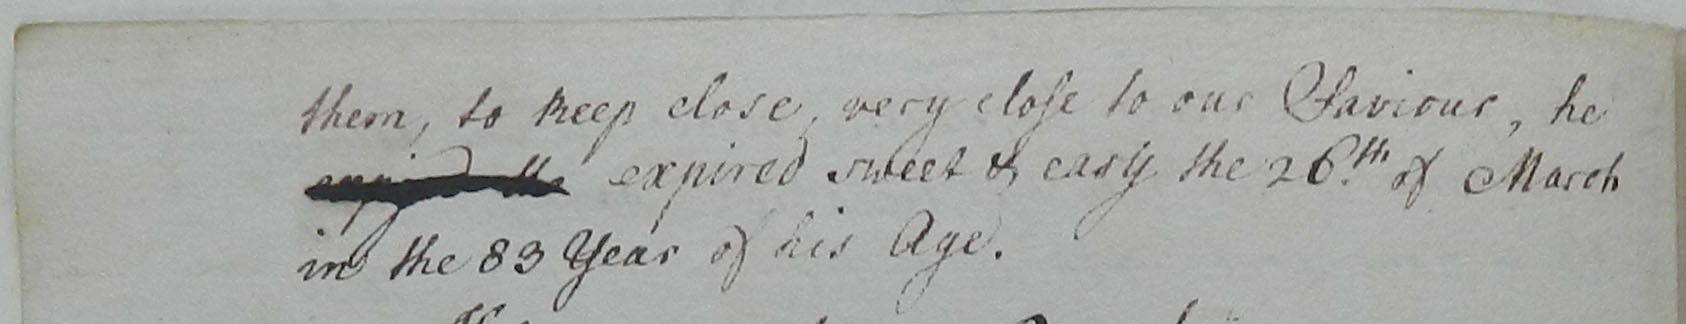 them, to keep close, very close to our Saviour, he
expired sweet & easy the 26th of March
in the 83 Year of his Age.